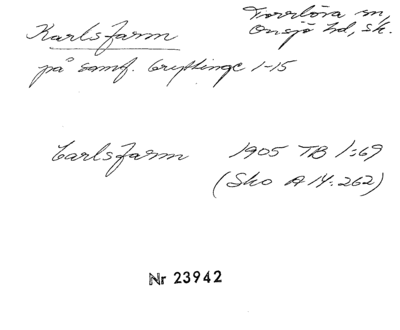 Karlsfarm
Torrlösa sn,
Onsjö hd, sk.
på samf. Gryttinge 1-15
Carlsfarm 1905 TB 1:69
(Sko A 14:262)
Nr 23942